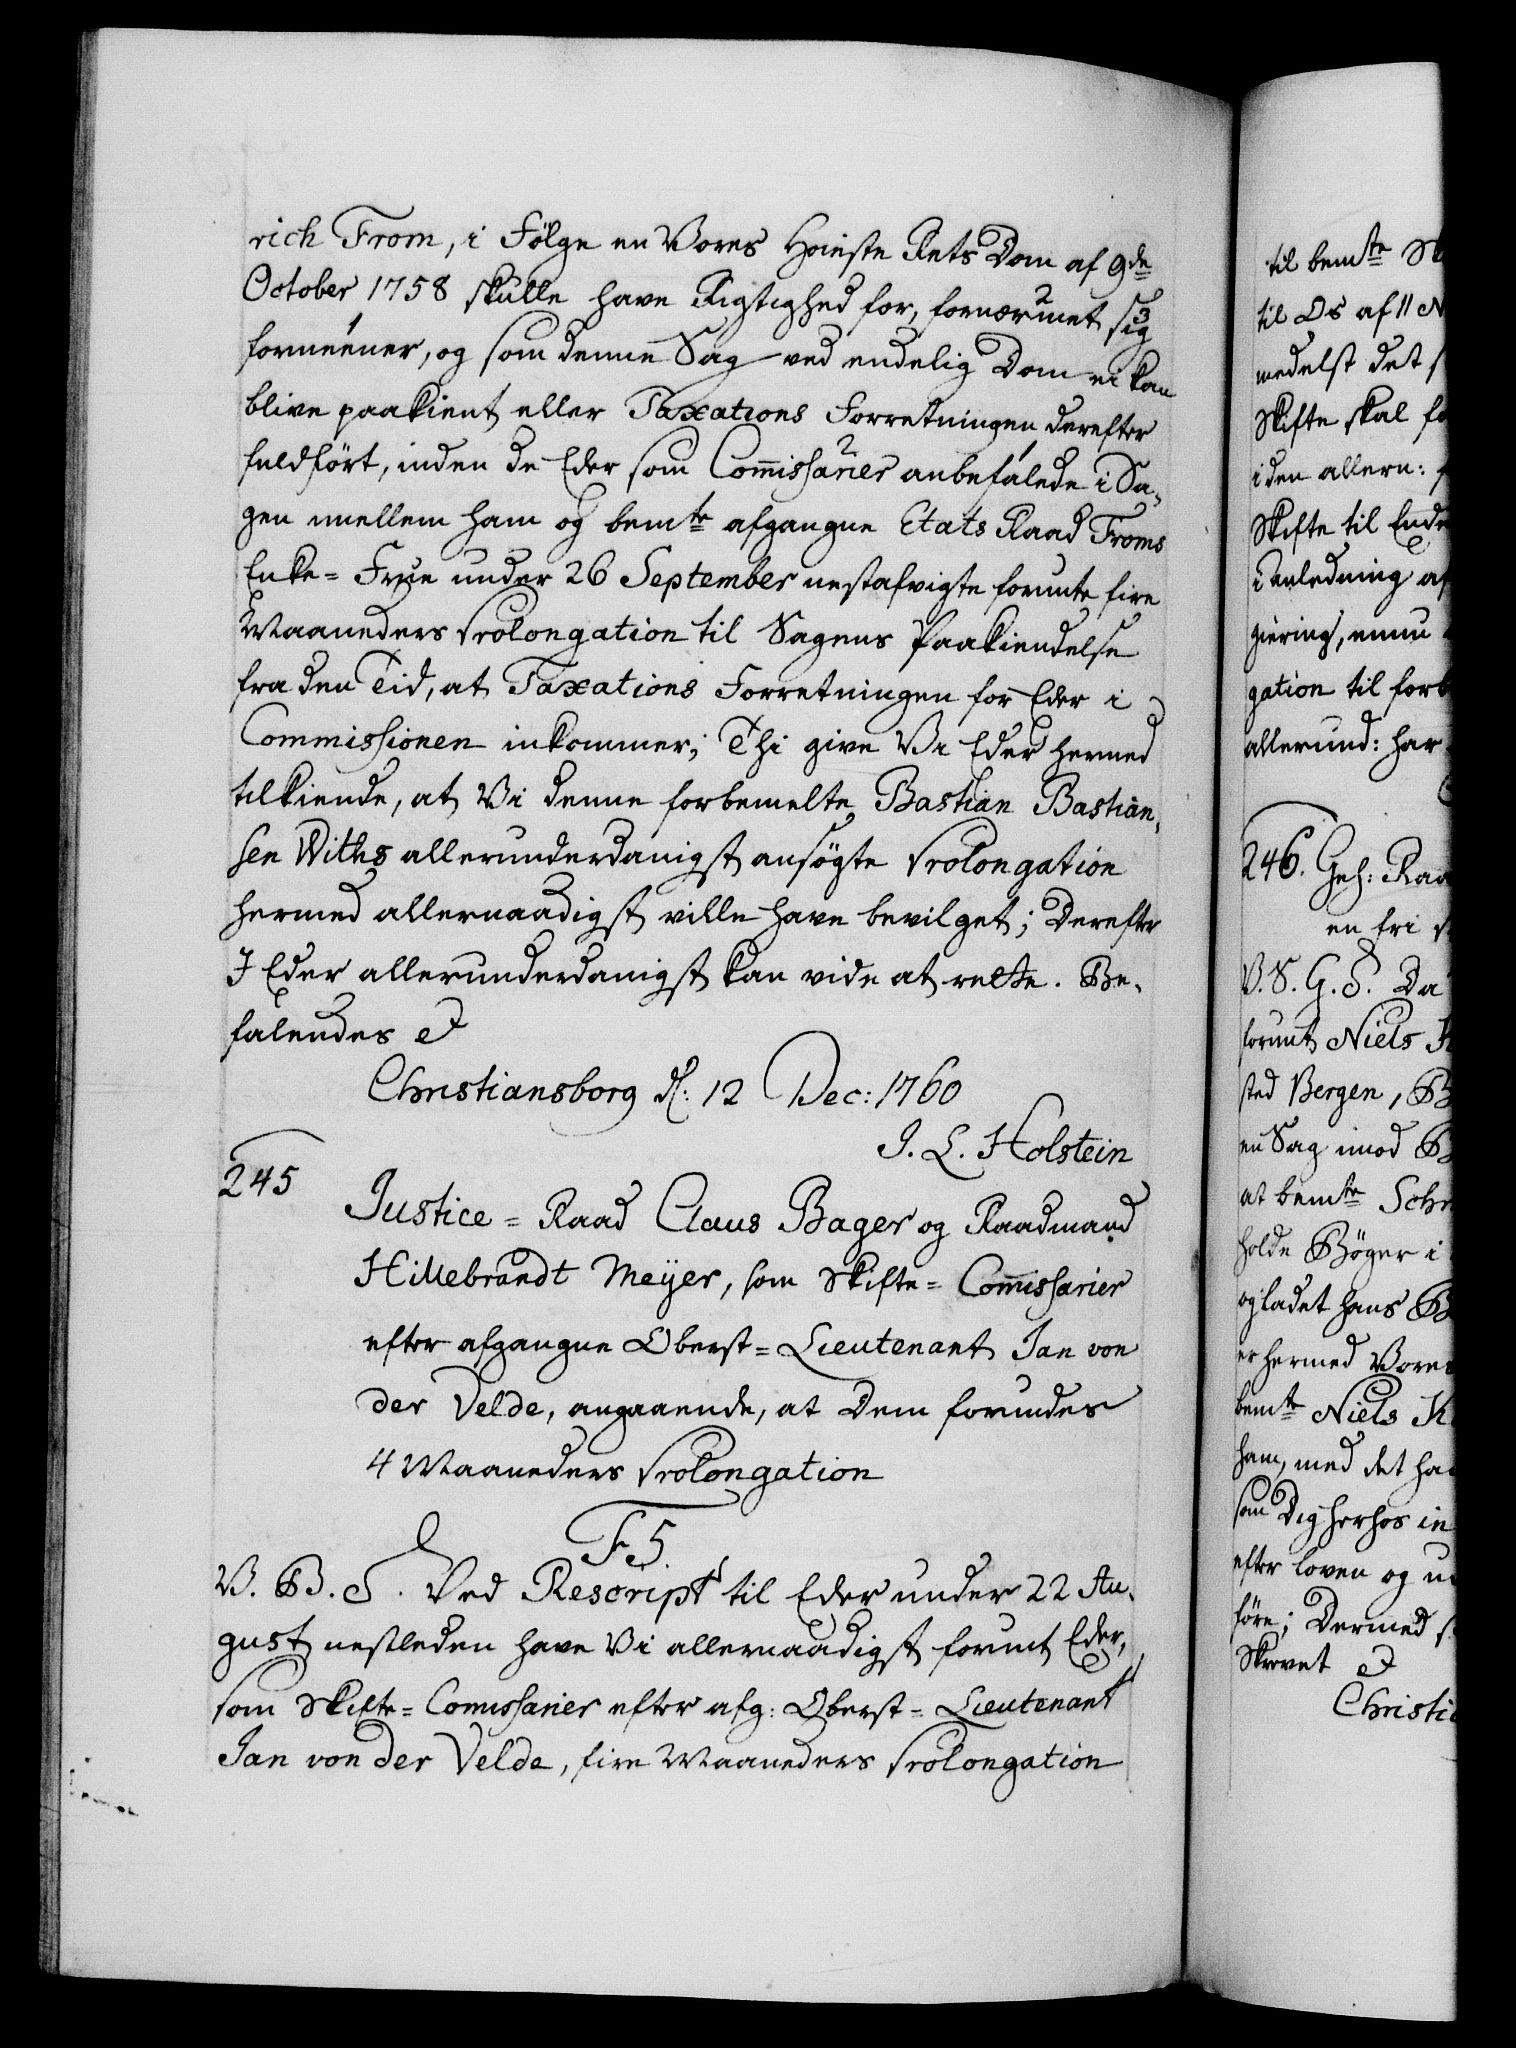 rich From, i Følge en Vores Høieste Rets Dom af 9de
October 1758 skulle have Rigtighed for, fornærmet sig
formeener, og som denne Sag ved endelig Dom ei kan
blive paakient eller Taxations Forretningen derefter
fuldført, inden de Eder som Commissarier anbefalede i Sa-
gen imellem ham og bemte afgangne Etats Raad Froms
Enke-Frue under 26 September nestafvigte forunte fire
Maaneders Prolongation til Sagens Paakiendelse
fra den Tid, at Taxations Forretningen for Eder i
Commissionen inkommer; Thi give Vi Eder hermed
tilkiende, at Vi denne forbemelte Bastian Bastian-
sen Withs allerunderdanigst ansøgte Prolongation
hermed allernaadigst ville have bevilget; Derefter
I Eder allerunderdanigst kan vide at rette. Be-
falendes
Christiansborg d: 12 Dec: 1760
J. L. Holstein
245
Justice-Raad Claus Bager og Raadmand
Hillebrandt Meyer, som Skifte-Commissarier
efter afgangne Oberst-Lieutenant Jan von
der Velde, angaaende, at Dem forundes
4 Maaneders Prolongation
F 5.
V. B. S. Ved Rescript til Eder under 22 Au-
gust nestleden have Vi allernaadigst forunt Eder,
som Skifte-Comissarier efter afg: Oberst-Lieutenant
Jan von der Velde, fire Maaneders Prolongation
til bemte
til Os af 11 N
medelst det
Skifte skal
i den allern:
Skifte til Ende
i Anledning af
giering, ennu
gation til
allerund: har
246. Geh: Raa
en fri
V. S. G. S. Da
forunt Niels
sted Bergen,
en Sag imod
at bemte
holde Bøger i
og ladet hans
er hermed Vores
bemte Niels
ham, med det
som Dig herhos
efter loven og
føre; Dermed
Skrevet
Christi